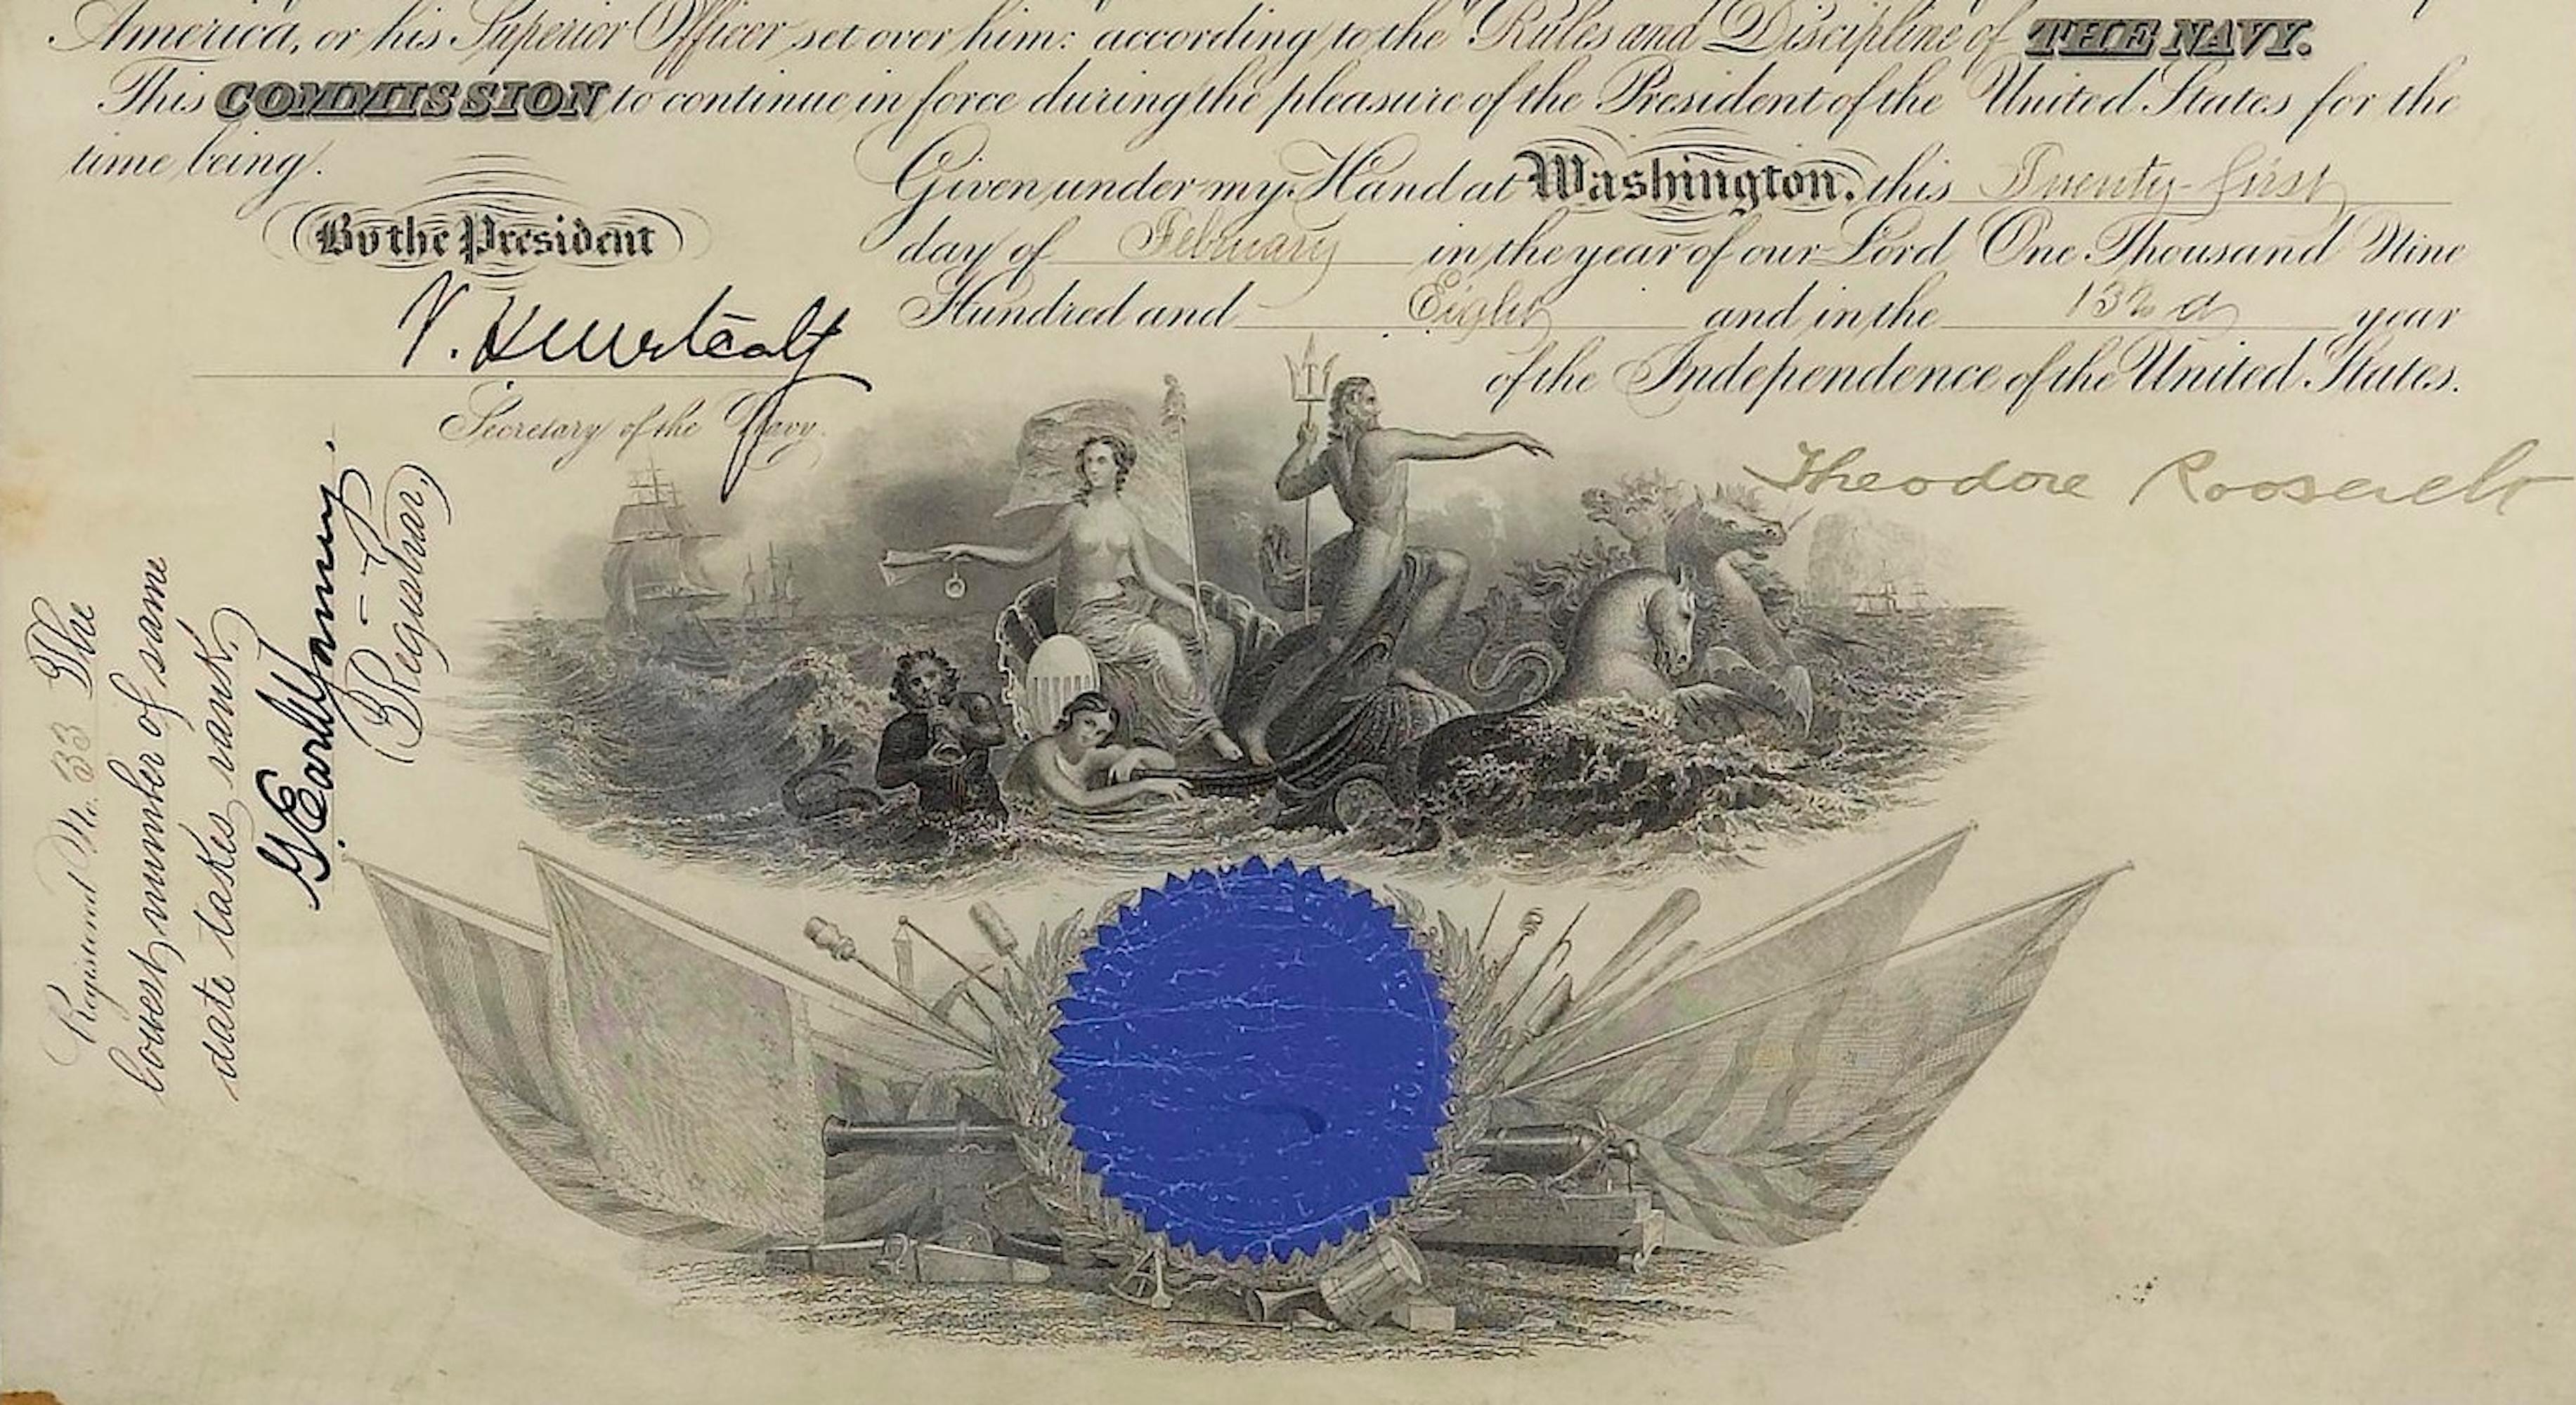 America, or his Superior Officer set over him: according to the Rules and Discipline of THE NAVY.
This COMMISSION to continue in force during the pleasure of the President of the United States for the
time being.
Given under my Hand at Washington, this Twenty-first
day of February in the year of our Lord One Thousand Nine
Hundred and Eight and in the 132d year
of the Independence of the United States.
By the President
V. H. Metcalf
Secretary of the Navy.
Theodore Roosevelt
Registered No. 33 The
lowest number of same
date takes rank.
(Registrar.)